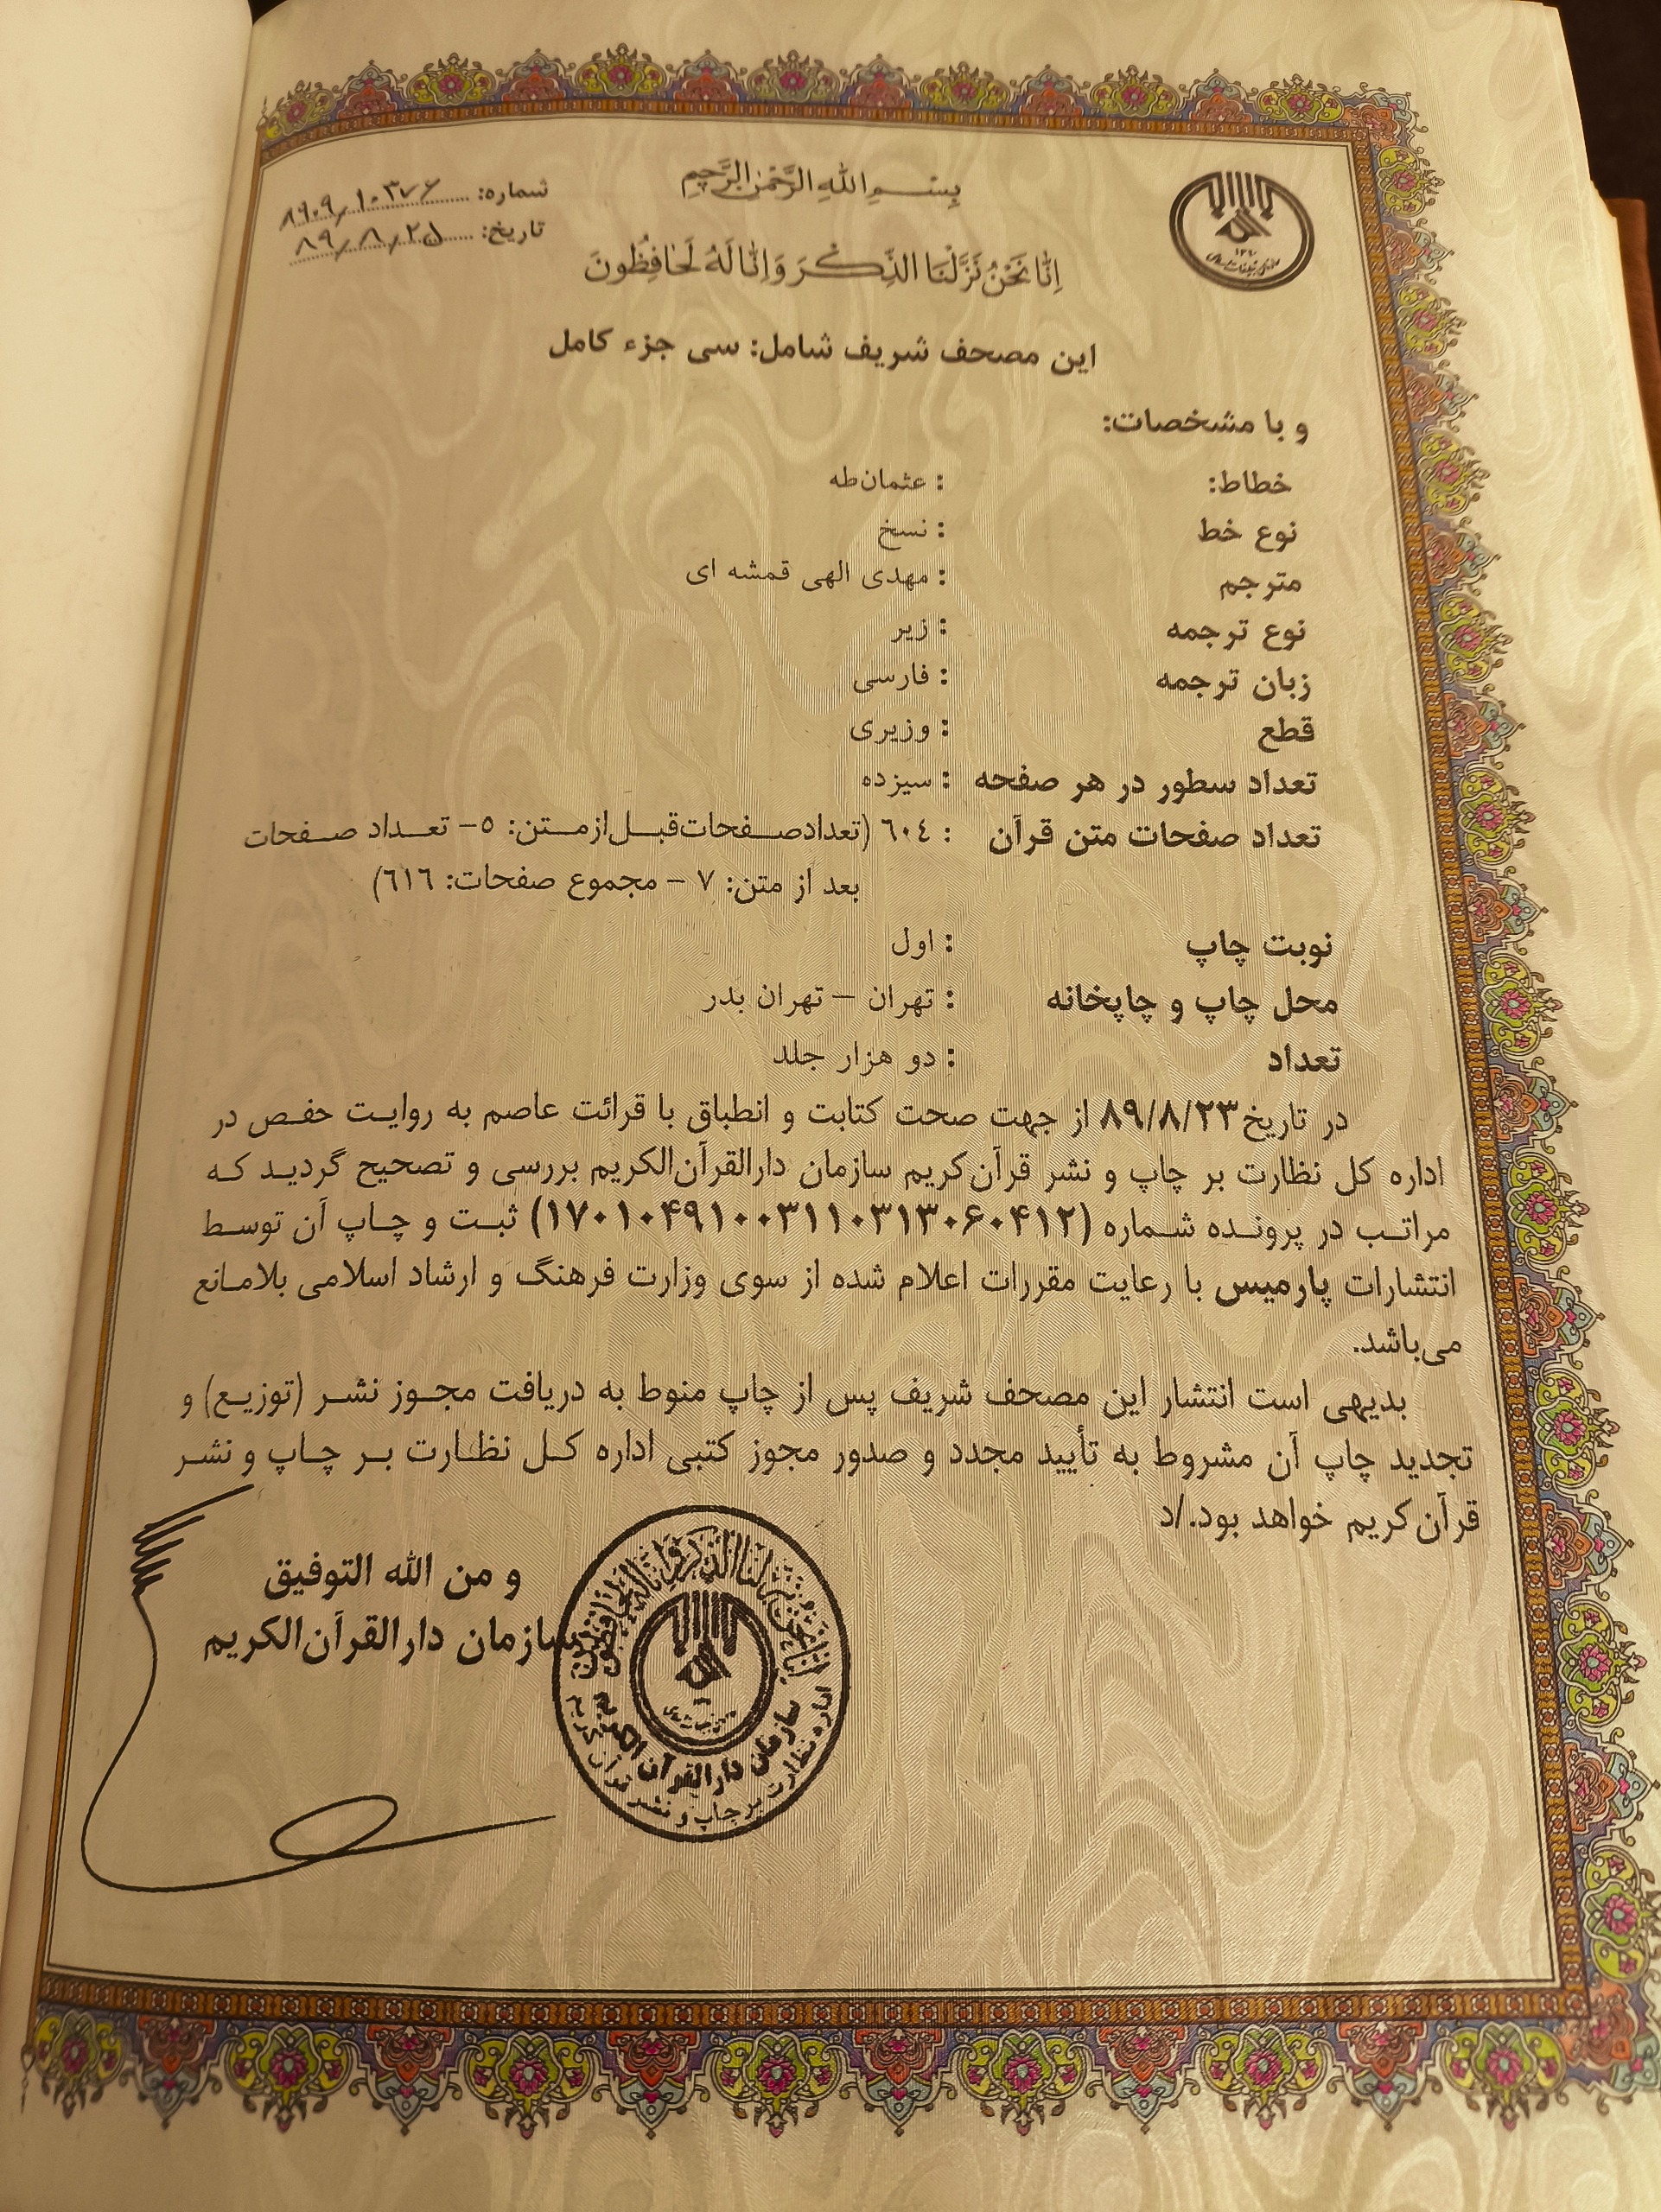 بِسْمِ اللهِ الرَّحْمٰنِ الرَّحِيمِ
شماره: ۸۹۰۹/۱۰۳۷۶
تاریخ: ۸۹/۸/۲۵
اِنّا نَحْنُ نَزَّلْنَا الذِّكْرَ وَاِنّا لَهُ لَحافِظُونَ
این مصحف شریف شامل: سی جزء کامل
و با مشخصات:
خطاط: : عثمان‌طه
نوع خط : نسخ
مترجم : مهدی الهی قمشه ای
نوع ترجمه : زیر
زبان ترجمه : فارسی
قطع : وزیری
تعداد سطور در هر صفحه : سیزده
تعداد صفحات متن قرآن : ٦٠٤ (تعداد صفحات قبل از متن: ٥- تعداد صفحات
بعد از متن: ٧ - مجموع صفحات: ٦١٦)
نوبت چاپ : اول
محل چاپ و چاپخانه : تهران – تهران بدر
تعداد : دو هزار جلد
در تاریخ ۸۹/۸/۲۳ از جهت صحت کتابت و انطباق با قرائت عاصم به روایت حفص در
اداره کل نظارت بر چاپ و نشر قرآن‌کریم سازمان دارالقرآن‌الکریم بررسی و تصحیح گردید که
مراتب در پرونده شماره (۱۷۰۱۰۴۹۱۰۰۳۱۱۰۳۱۳۰۶۰۴۱۲) ثبت و چاپ آن توسط
انتشارات پارمیس با رعایت مقررات اعلام شده از سوی وزارت فرهنگ و ارشاد اسلامی بلامانع
می‌باشد.
بدیهی است انتشار این مصحف شریف پس از چاپ منوط به دریافت مجوز نشر (توزیع) و
تجدید چاپ آن مشروط به تأیید مجدد و صدور مجوز کتبی اداره کل نظارت بر چاپ و نشر
قرآن‌کریم خواهد بود./د
و من الله التوفیق
سازمان دارالقرآن‌الکریم
سازمان دارالقرآن الکریم
اداره نظارت بر چاپ و نشر قرآن کریم